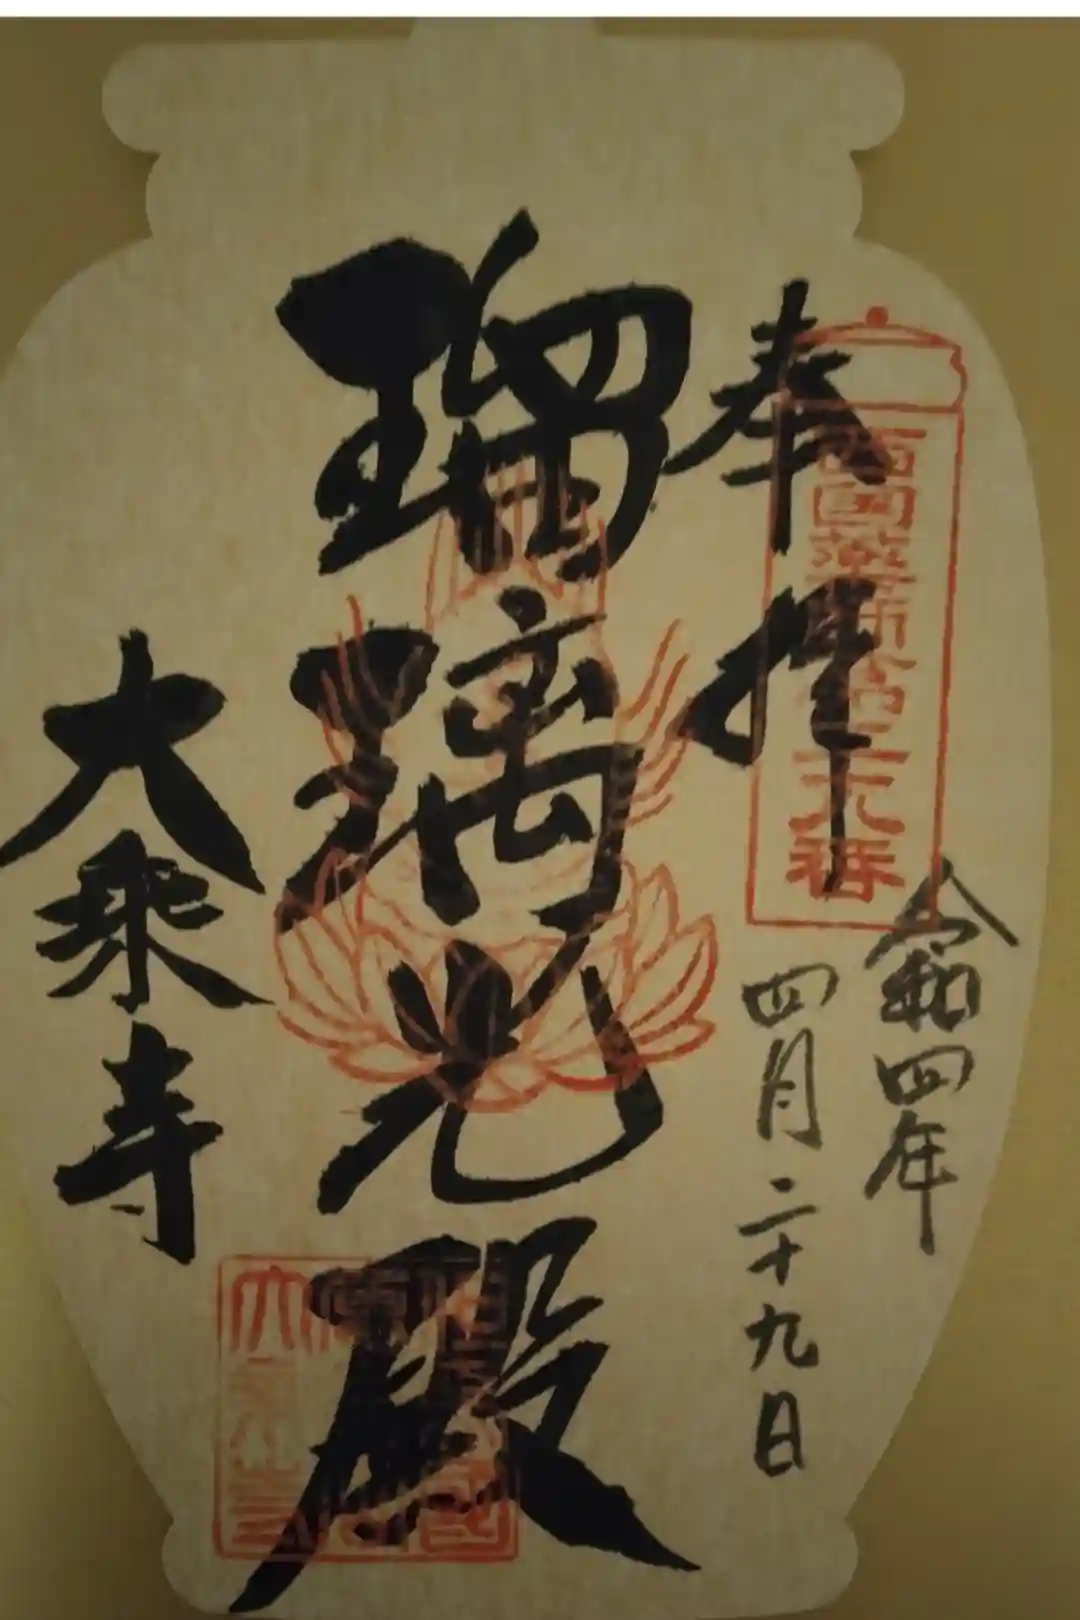 奉拝
西国薬師
番
令和四年
四月二十九日
瑠璃光殿
大乗寺